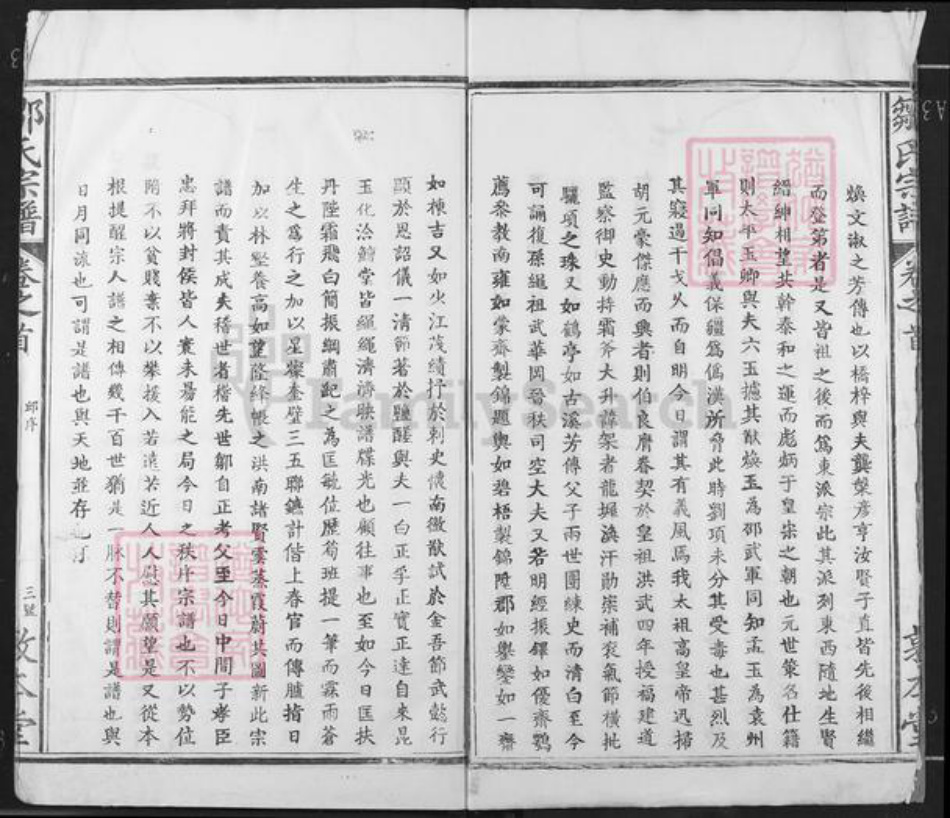 鄒氏宗譜
卷之首
煥文淑之芳傳也以橋梓與夫龔槃彥亨汝賢子直皆先後相繼
而登第者是又皆祖之後而為東派宗此其派列東西隨地生賢
縉紳相望共幹泰和之運而彪炳于皇宋之朝也元世策名仕籍
則太平玉卿與夫六玉攄其猷煥玉為邵武軍同知孟玉為袁州
軍同知倡義保疆為偽漢所脅此時劉項未分其受毒也甚烈及
其寇過干戈乂而自明今日謂其有義風焉我太祖高皇帝迅掃
胡元豪傑應而興者則伯良膺眷契於皇祖洪武四年授福建道
監察御史動持霜斧大升諱架者龍墀渙汗勛崇補袞氣節橫批
驪項之珠又如鶴亭如古溪芳傳父子兩世團練史而清白至今
可誦復孫繩祖武華岡晉秩司空大夫又若明經振鐸如優齋鶚
薦參教南雍如蒙齋製錦題輿如碧梧製錦陞郡如舉變如一齋
如棟吉又如火江茂績抒於刺史懷南徽猷試於金吾節武懿行
顯於恩詔儀一清節著於鹽醝與夫一白正孚正實正達自來昆
玉化洽鱣堂皆繩繩濟濟映譜牒光也顧往事也至如今日匡扶
丹陛霜飛白簡振綱肅紀之為匡毓位歷筍班提一筆而霖雨蒼
生之為行之加以星燦奎壁三五聯鑣計偕上春官而傳臚指日
加以林壑養高如望啟絳帳之洪南諸賢雲蒸霞蔚共圖新此宗
譜而責其成夫稽世者稽先世鄒自正考父至今日中間子孝臣
忠拜將封侯皆人寰未易能之局今日之秩序宗譜也不以勢位
隔不以貧賤棄不以攀援入若遠若近人人慰其願望是又從本
根提醒宗人譜之相傳幾千百世猶是一脉不替則謂是譜也與
日月同流也可謂是譜也與天地並存也可
氏宗譜
卷之首
邱序
三
敦本堂
FamilySearch